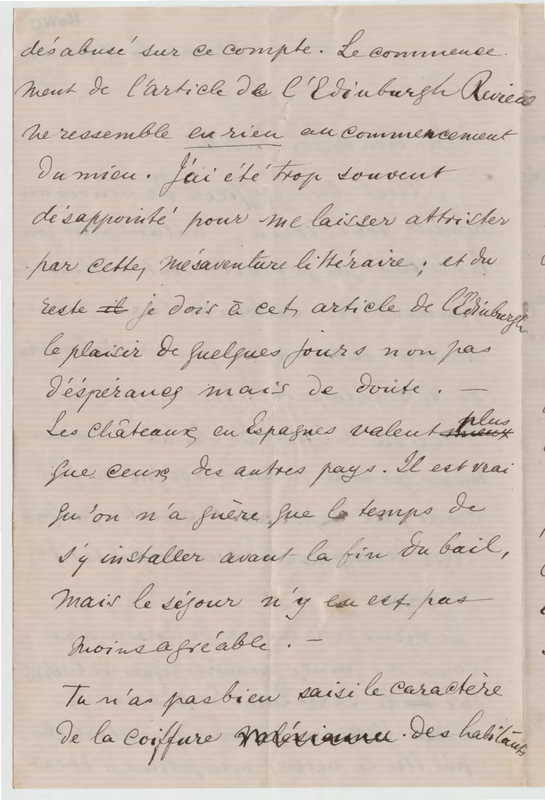 désabusé sur ce compte. Le commence
ment de l'article de l'Edinburgh Review
ne ressemble en rien au commencement
du mien. J'ai été trop souvent
désappointé pour me laisser attrister
par cette mésaventure littéraire; et du
reste il je dois à cet article de l'Edinburgh
le plaisir de quelques jours non pas
d'éspérance mais de doute. —
Les châteaux en Espagnes valent mieux plus
que ceux des autres pays. Il est vrai
qu'on n'a guère que le temps de
s'y installer avant la fin du bail,
mais le séjour n'y en est pas
moins agréable. —
Tu n'as pas bien saisi le caractère
de la coiffure des habitants